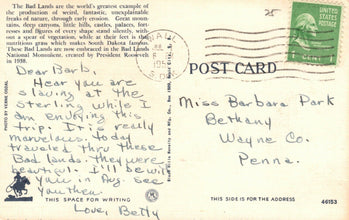 The Bad Lands are the world's greatest example of
the production of weird, fantastic, unexplainable
freaks of nature, through early erosion. Great moun-
tains, deep canyons, little hills, castles, palaces, for-
tresses and figures of every shape stand silently, with-
out a spear of vegetation, while at their feet is the
nutritious grass which makes South Dakota famous.
These Bad Lands are now embraced in the Bad Lands
National Monument, created by President Roosevelt
in 1938.
Dear Barb,
Hear you are
slaving at the
sterling while I
am enjoying this
trip. It is really
marvelous. Today
traveled thru these
Bad lands. They were
beautiful. I'll be with
you in Aug. See
you then
Love, Betty
THIS SPACE FOR WRITING
POST CARD
1 CENT 1
Miss Barbara Park
Bethany
Wayne Co.
Penna.
THIS SIDE IS FOR THE ADDRESS
46153